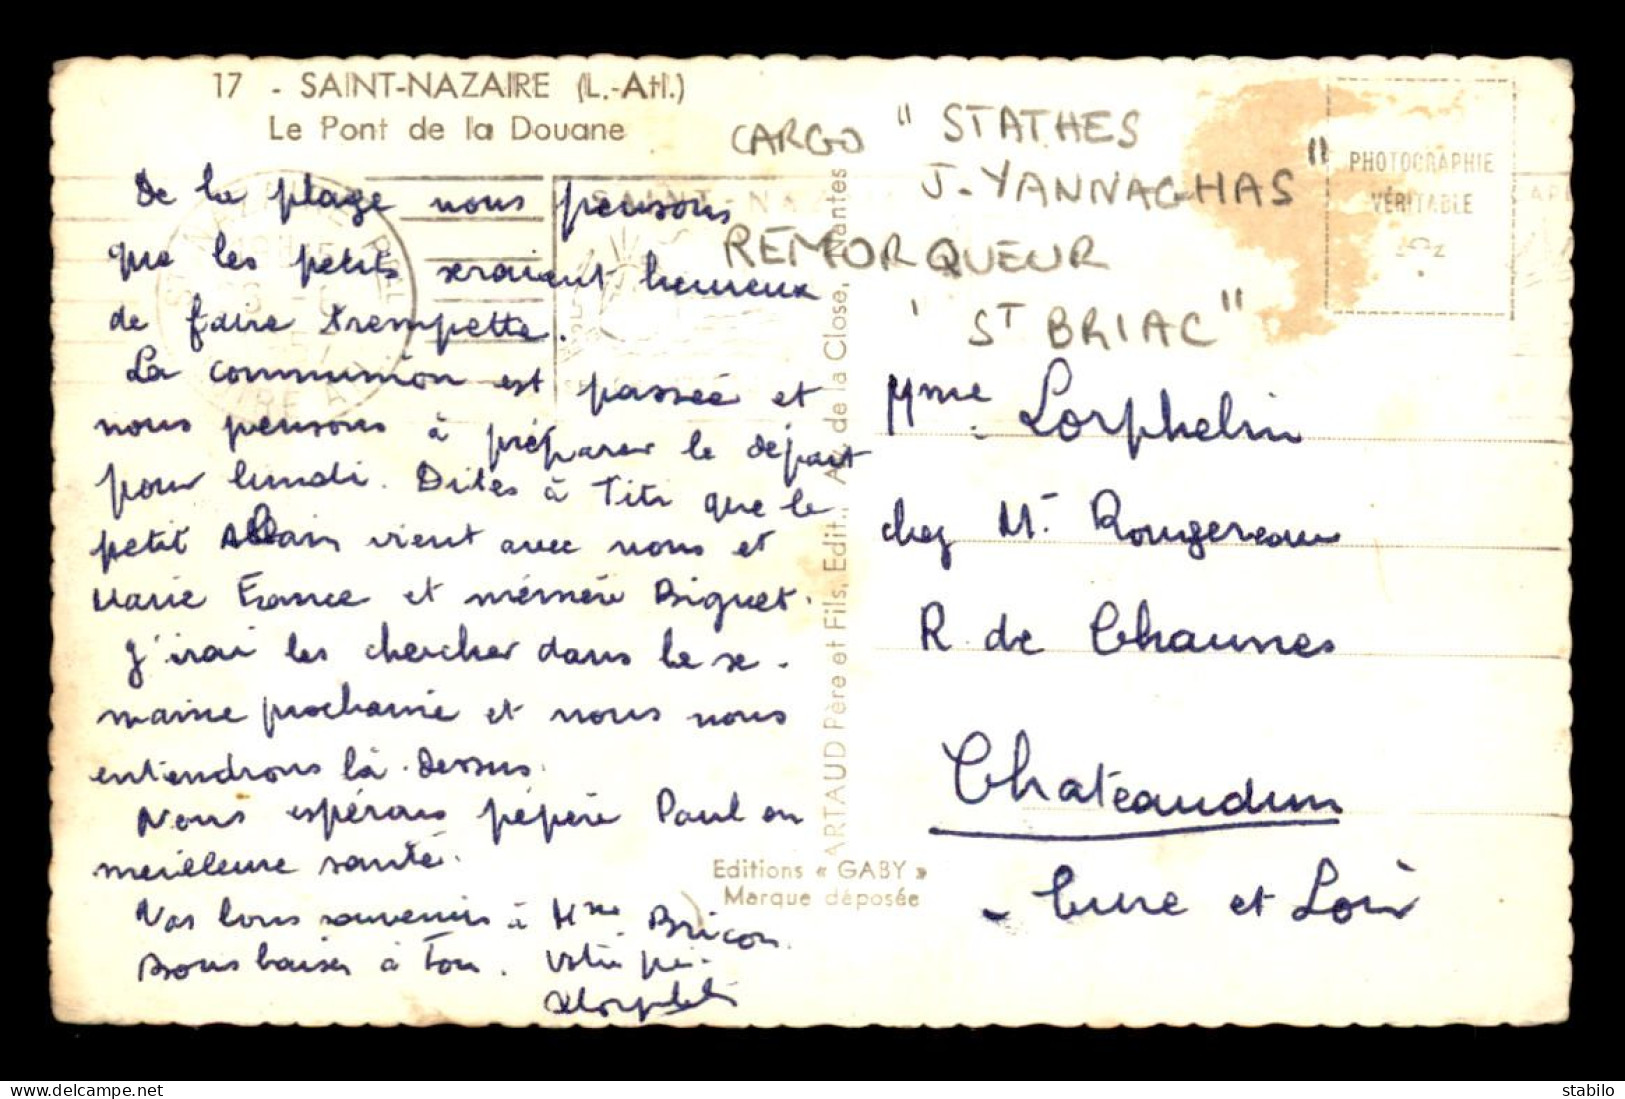 17 - SAINT-NAZAIRE (L.-Atl.)
Le Pont de la Douane
De la plage nous pensons
que les petits seraient heureux
de faire trempette.
La communion est passée et
nous pensons à préparer le départ
pour lundi. Dites à Titi que le
petit Alain vient avec nous et
Marie France et mémère Biguet.
J'irai les chercher dans la se-
maine prochaine et nous nous
entendrons là-dessus.
Nous espérons pépère Paul en
meilleure santé.
Nos bons souvenirs à Mme Bricon.
Bons baisers à Tous. Votre
CARGO "STATHES
J-YANNAGHAS"
REMORQUEUR
'ST BRIAC"
PHOTOGRAPHIE
VÉRITABLE
Mme Lorphelin
chez Mr Rougereau
R. de Chaunes
Chateaudun
Eure et Loir
ARTAUD Père et Fils, Edit., Av. de la Close, Nantes
Editions « GABY »
Marque déposée
SAINT-NAZ
stabilo
https://www.delcampe.net/stores/stabilo